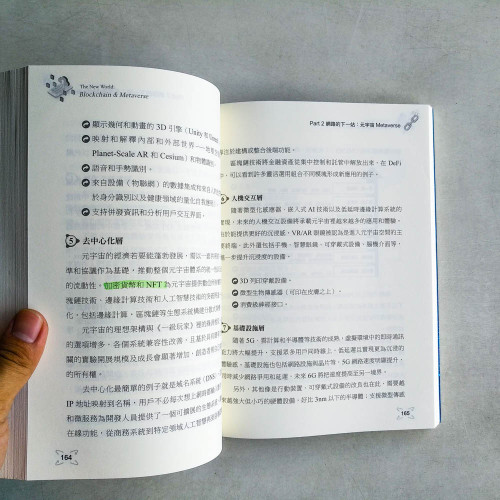 The New World:
Blockchain & Metaverse
顯示幾何和動畫的 3D 引擎（Unity 和
映射和解釋內部和外部世界
Planet-Scale AR 和 Cesium）和物體
語音和手勢識別。
來自設備（物聯網）的數據集成和來自人
於身分識別以及健康領域的量化自我
支持併發資訊和分析用戶交互界面。
5 去中心化層
元宇宙的經濟若要能蓬勃發展，需以一套
準和協議作為基礎，推動整個元宇宙體系的統
的流動性。加密貨幣和 NFT 為元宇宙提供數位所
塊鏈技術、邊緣計算技術和人工智慧技術的突
化，包括邊緣計算、區塊鏈等生態系統構建分
元宇宙的理想架構與《一級玩家》裡的
的選項增多，各個系統兼容性改善，且基於具
的實驗開展規模及成長會顯著增加，創造者
有權。
去中心化最簡單的例子就是域名系統（DNS），
IP 地址映射到名稱，用戶不必每次想上網時都
和微服務為開發人員提供了一個可擴展的生態
在線功能，從商務系統到特定領域人工智慧再到
164
Part 2 網路的下一站：元宇宙 Metaverse
注於建構或整合後端功能。
區塊鏈技術將金融資產從集中控制和託管中解放出來，在 DeFi
中，可以看到許多靈活運用組合不同模塊形成新應用的例子。
6 人機交互層
隨著微型化感應器、嵌入式 AI 技術以及低延時邊緣計算系統的
實現，未來的人機交互設備將承載元宇宙裡越來越多的應用和體驗。
由於能提供更好的沉浸感，VR/AR 頭顯被認為是進入元宇宙空間的主
要終端。此外還包括手機、智慧眼鏡、可穿戴式設備、腦機介面等，
進一步提升沉浸度的設備。
3D 列印穿戴設備。
微型生物傳感器（可印在皮膚之上）。
消費級神經接口。
7 基礎設施層
隨著 5G、雲計算和半導體等技術的成熟，虛擬環境中的即時通訊
能力將大幅提升，支援眾多用戶同時線上，低延遲以實現更為沉浸的
感。基礎設施也包括網路設施與晶片等，5G 網路速度明顯提升，
減少網路爭用和延遲，未來 6G 將把速度提高至另一境界。
另外，其他像是行動裝置、可穿戴式設備的改良也在此，需要越
越強大但小巧的硬體設備，好比 3nm 以下的半導體；支撐微型傳感
165